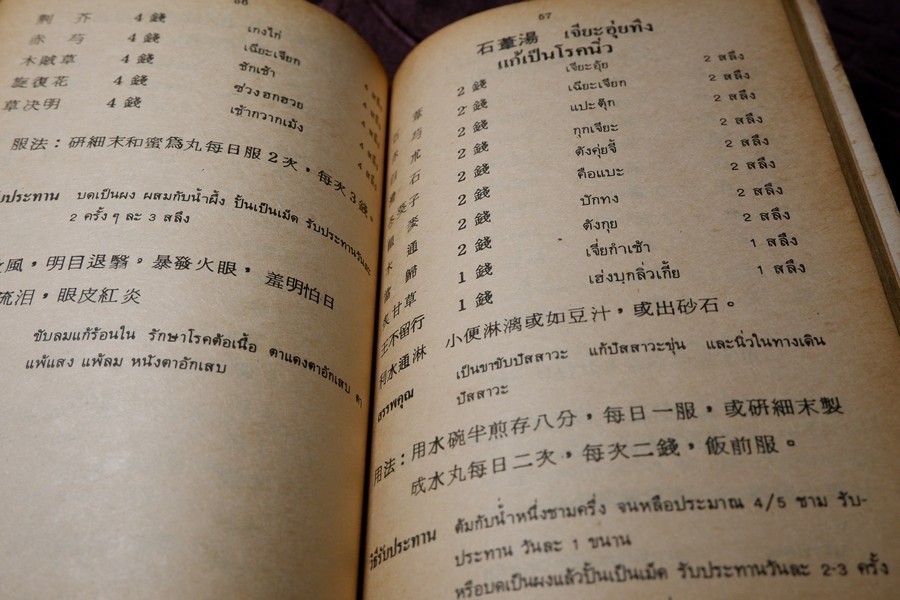 56
荊芥 4 錢 เกงไก่ 4 สลึง
赤芍 4 錢 เฉียะเจียก 4 สลึง
木賊草 4 錢 ซักเช้า 4 สลึง
旋復花 4 錢 ซ่วงฮกฮวย 4 สลึง
草决明 4 錢 เช้ากวากเม้ง 4 สลึง
服法：硏細末和蜜爲丸每日服2次，每次3錢。
รับประทาน บดเป็นผง ผสมกับน้ำผึ้ง ปั้นเป็นเม็ด รับประทานวันละ
2 ครั้งๆ ละ 3 สลึง
風，明目退翳。暴發火眼，羞明怕日
流泪，眼皮紅炎
ขับลมแก้ร้อนใน รักษาโรคต้อเนื้อ ตาแดงตาอักเสบ ตา
แพ้แสง แพ้ลม หนังตาอักเสบ
57
石葦湯 เจียะอุ่ยทึง
แก้เป็นโรคนิ่ว
葦 2 錢 เจียะอุ้ย 2 สลึง
芍 2 錢 เฉียะเจียก 2 สลึง
朮 2 錢 แปะตุ๊ก 2 สลึง
石 2 錢 กุกเจียะ 2 สลึง
冬葵子 2 錢 ตังคุ่ยจี้ 2 สลึง
瞿麥 2 錢 คือแบะ 2 สลึง
木通 2 錢 บักทง 2 สลึง
當歸 2 錢 ตังกุย 2 สลึง
炙甘草 1 錢 เจี่ยกำเช้า 1 สลึง
王不留行 1 錢 เฮ่งบุกลิ่วเกี้ย 1 สลึง
利水通淋 小便淋漓或如豆汁，或出砂石。
สรรพคุณ เป็นยาขับปัสสาวะ แก้ปัสสาวะขุ่น และนิ่วในทางเดิน
ปัสสาวะ
用法：用水碗半煎存八分，每日一服，或硏細末製
成水丸每日二次，每次二錢，飯前服。
วิธีรับประทาน ต้มกับน้ำหนึ่งชามครึ่ง จนเหลือประมาณ 4/5 ชาม รับ-
ประทาน วันละ 1 ขนาน
หรือบดเป็นผงแล้วปั้นเป็นเม็ด รับประทานวันละ 2-3 ครั้ง